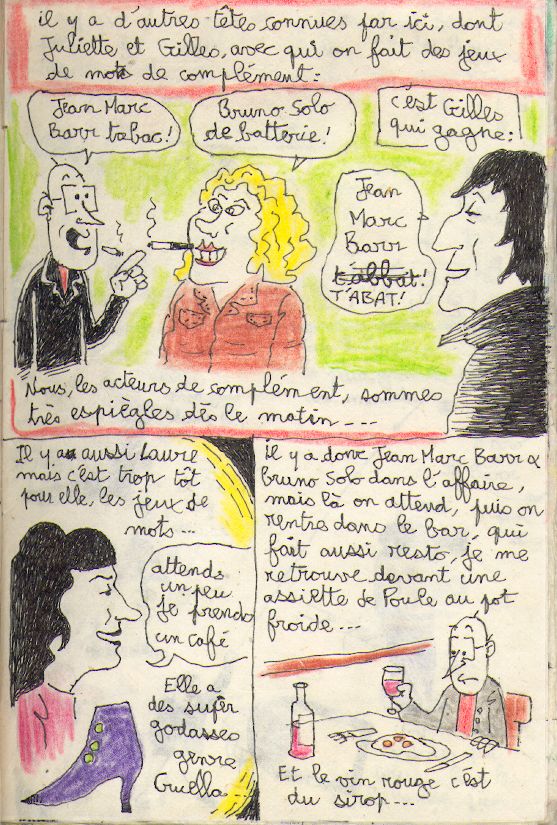 il y a d'autres têtes connues par ici, dont
Juliette et Gilles, avec qui on fait des jeux
de mots de complément :
Jean Marc
Barr tabac !
Bruno Solo
de batterie !
c'est Gilles
qui gagne :
Jean
Marc
Barr
t'abbat !
T'ABAT !
Nous, les acteurs de complément, sommes
très espiègles dès le matin ---
Il y a aussi Laure
mais c'est trop tôt
pour elle, les jeux de
mots ...
attends
un peu
je prends
un café
Elle a
des super
godasses
genre
Cruella...
il y a donc Jean Marc Barr &
bruno Solo dans l'affaire,
mais là on attend, puis on
rentres dans le bar, qui
fait aussi resto, je me
retrouve devant une
assiette de Poule au pot
froide ---
Et le vin rouge c'est
du sirop ---